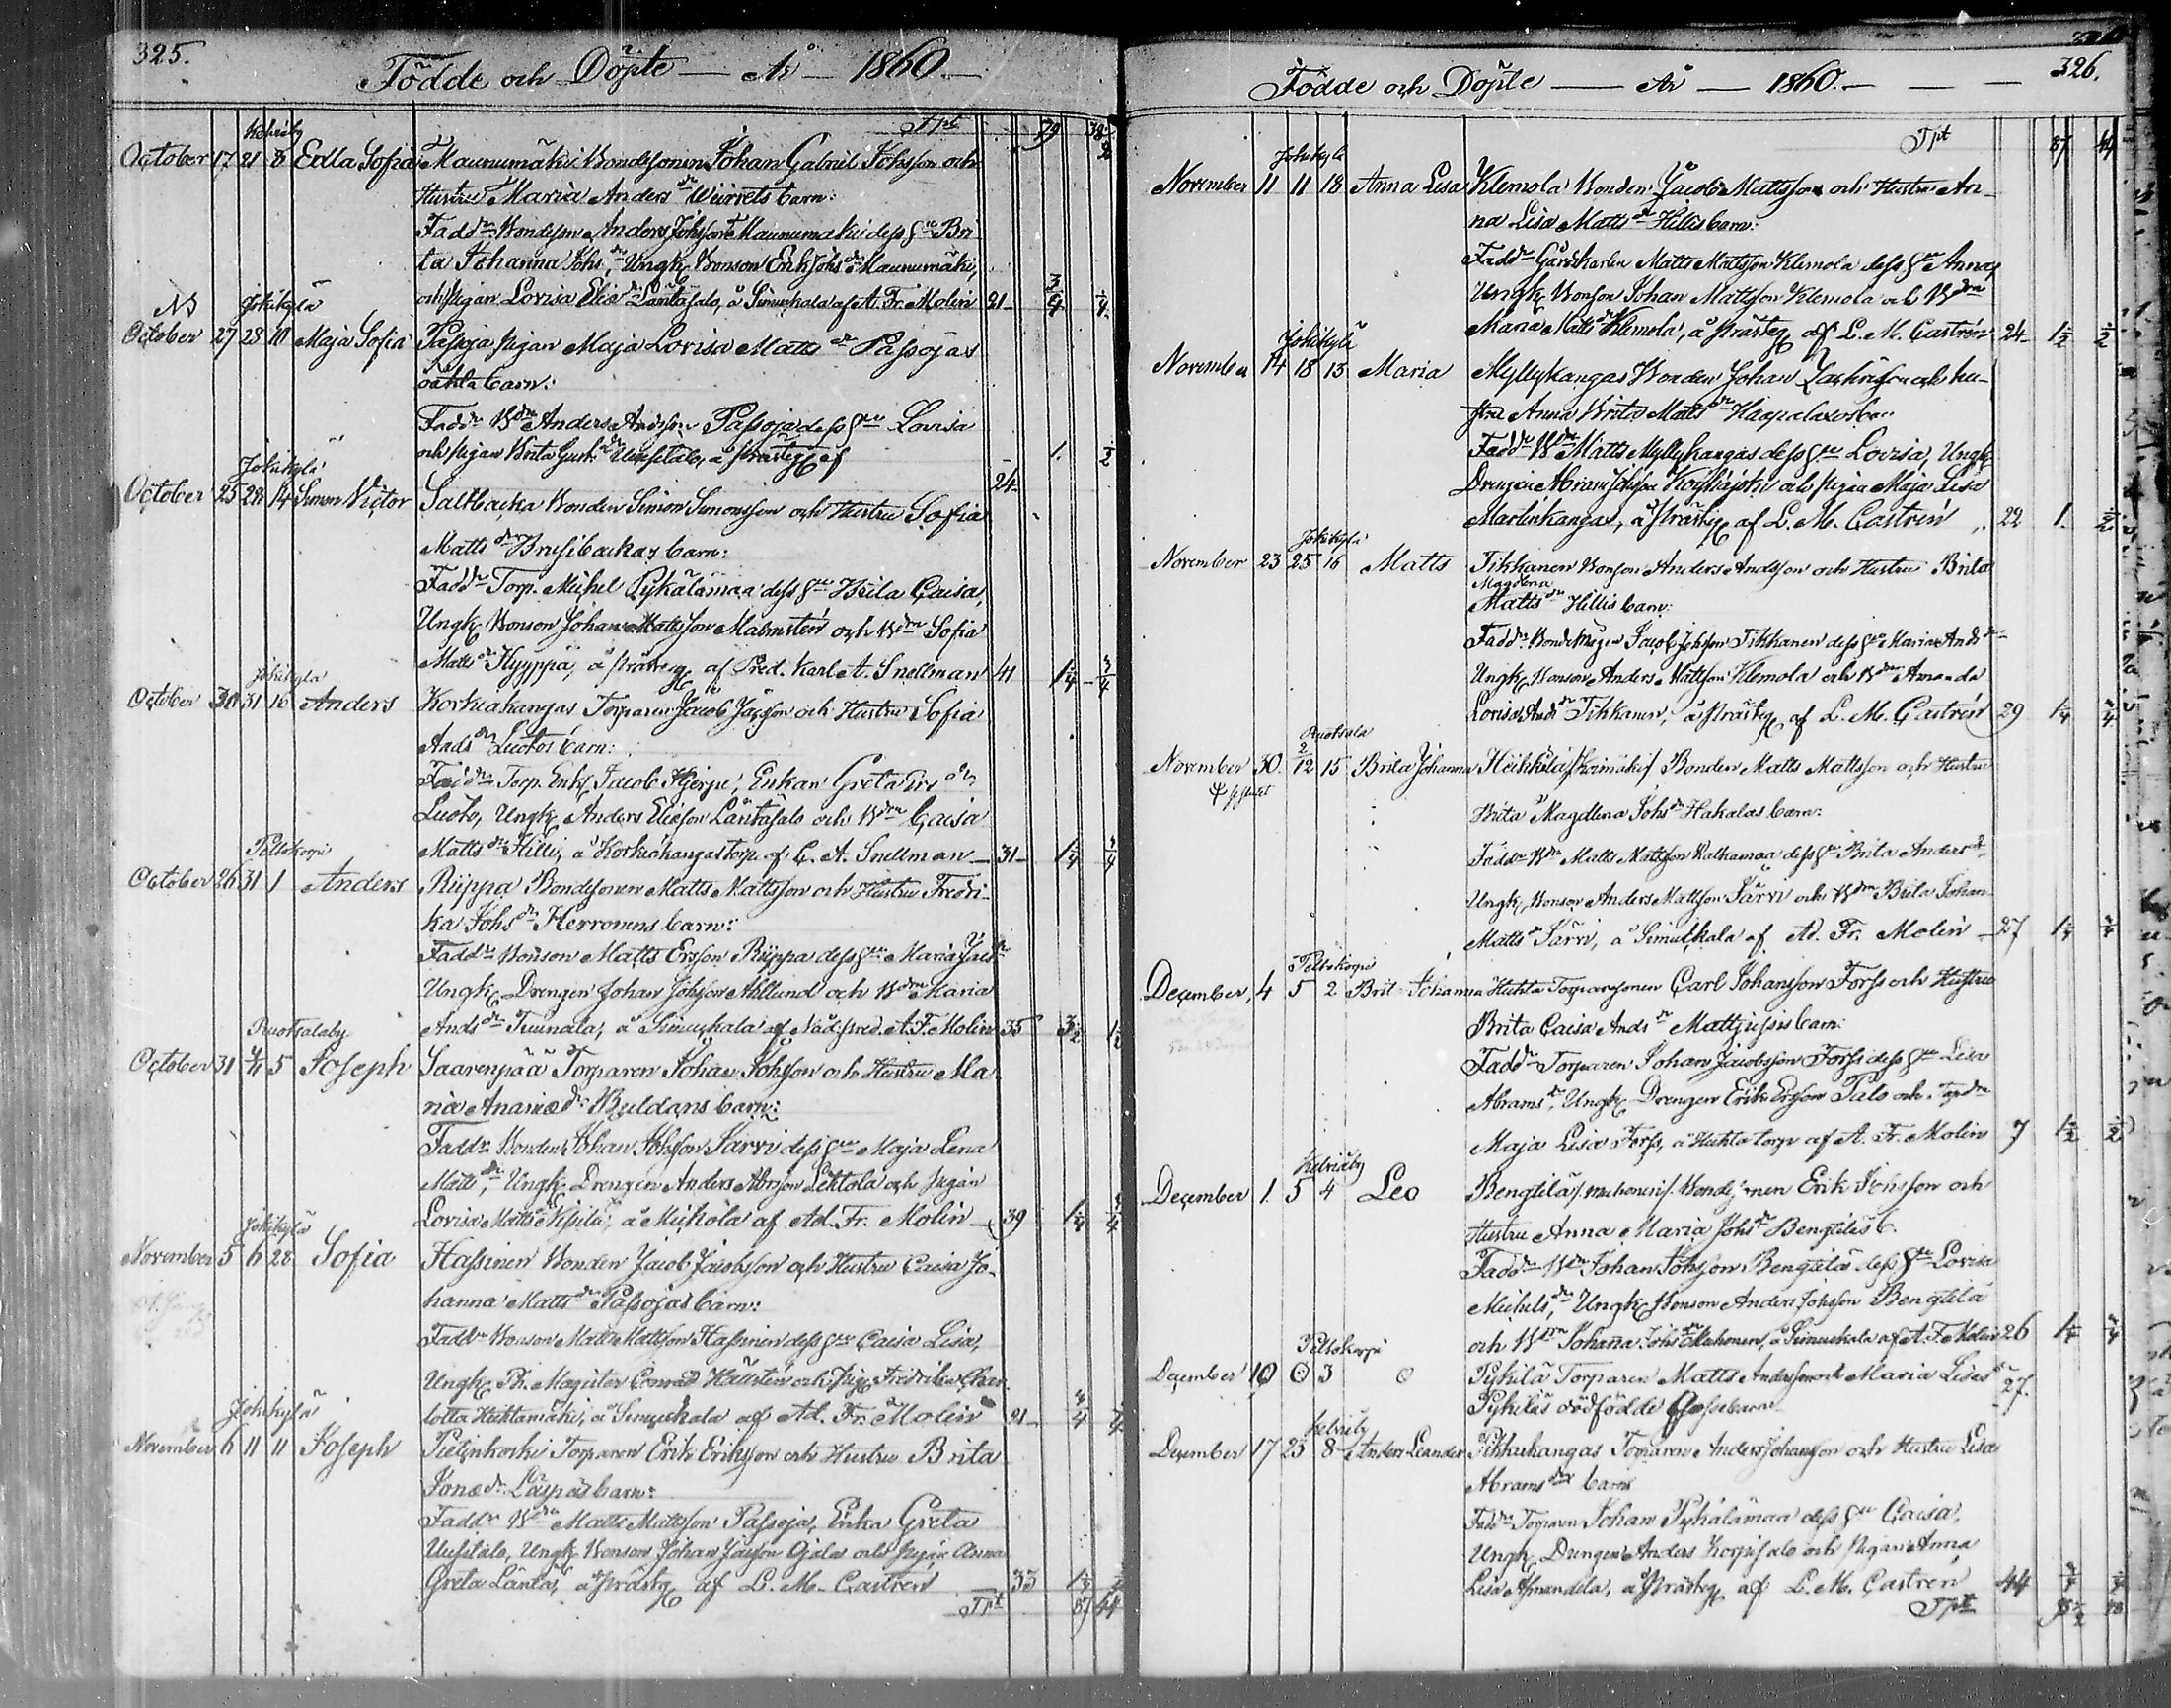 325.
Födde och Döpte — År — 1860. —
Tpt 79 38 1/2
Kelviby
October 17 21 8 Edla Sofia Maunumäki Bondesonen Johan Gabriel Johsson och
Hustru Maria Anders dr Wiirrets barn:
Fadd:r Bondeson Anders Johsson Maunumäki dess h:u Bri
ta Johanna Johs dr, Ungk. Bonson Erik Johs Maunumäki,
och pigan Lovisa Elias dr Läntäsalo, å Simuskala af A. Fr. Molin 21 3/4 1/4
NB Jokikylä
October 27 28 18 Maja Sofia Passoja pigan Maja Lovisa Matts dr Passojas
oäkta barn:
Fadd:r B:dn Anders Andsson Passoja dess h:u Lovisa
och pigan Brita Gust. dr Uusitalo, å prästg. af 24 1. 1/2
Jokikylä
October 25 28 14 Simon Victor Saltbacka Bonden Simon Simonsson och Hustru Sofia
Matts dr Brusibackas barn:
Fadd:r Torp. Michel Pyhälämaa dess h:u Brita Caisa,
Ungk. Bonson Johan Mattsson Malmsten och B:dtr Sofia
Matts dr Hyyppä, å prästg. af Pred. Karl A. Snellman 41 1 1/4 3/4
Jokikylä
October 30 31 16 Anders Korkiakangas Torparen Jacob Jacsson och Hustru Sofia
Ands dr Luotos barn:
Fadd:r Torp. Enkl. Jacob Hjerpe, Enkan Greta
Luoto, Ungk. Anders Eliasson Läntäsalo och B:dtr Caisa
Matts dr Hilli, å Korkiakangas torp af C. A. Snellman 31 1 1/4 3/4
Peltokorpi
October 26 31 1 Anders Riippa Bondesonen Matts Mattsson och Hustru Fredri-
ka Johs dr Herronens barn:
Fadd:r Bonson Matts Ersson Riippa dess h:u Maria Jacs dr
Ungk. Drengen Johan Johsson Ahllund och B:dtr Maria
Ands dr Tunnala, å Simuskala af Nådpred. A. F. Molin 35 3 1/2 1 1/2
Ruotsaloby
October 31 4/11 5 Joseph Saarenpää Torparen Johan Johsson och Hustru Ma-
ria Ananiæ dr Buldans barn:
Fadd:r Bonden Johan Johsson Särri dess h:u Maja Lena
Matts dr, Ungk. Drengen Anders Abrsson Lehtola och pigan
Lovisa Matts dr Kisilä, å Mickola af Ad. Fr. Molin 39 1 1/4 3/4
Jokikylä
November 5 6 28 Sofia Hassinen Bonden Jacob Jacobsson och Hustru Caisa Jo-
hanna Matts dr Passojas barn:
Fadd:r Bonson Matts Mattsson Hassinen dess h:u Caisa Lisa,
Ungk. Ph. Magister Conrad Hällsten och pig. Fredrika Char-
lotta Huhtamäki, å Simuskala af Ad. Fr. Molin 21 3/4 1/4
Jokikylä
November 6 11 11 Joseph Pietinkoski Torparen Erik Eriksson och Hustru Brita
Jonæ dr Laspas barn:
Fadd:r B:dn Matts Mattsson Passoja, Enka Greta
Uusitalo, Ungk. Bonson Johan Jacsson Ojala och pigan Anna
Greta Läntä, å prästg. af L. M. Castrén 33 1 1/4
Tpt 87 44
326.
Födde och Döpte — År — 1860. —
Tpt 87 44
Jokikylä
November 11 11 18 Anna Lisa Klemola Bonden Jacob Mattsson och Hustru An-
na Lisa Matts dr Hillis barn:
Fadd:r Gårdskarlen Matts Mattsson Klemola dess h:u Anna,
Ungk. Bonson Johan Mattsson Klemola och B:dtr
Maria Matts dr Klemola, å prästg. af L. M. Castrén 24 1 1/2 1/2
Jokikylä
November 14 18 13 Maria Myllykangas Bonden Johan Zachrisson och hu-
stru Anna Brita Matts dr Haapalaxos barn
Fadd:r B:dn Matts Myllykangas dess h:u Lovisa, Ungk.
Drengen Abram Johsson och pigan Maja Lisa
Martinkangas, å prästg. af L. M. Castrén 22 1. 1/2
Jokikylä
November 23 25 16 Matts Tikkanen Bonson Anders Andsson och Hustru Brita
Magdlena
Matts dr Hillis barn:
Fadd:r Jacob Johsson Tikkanen dess h:u Maria Ands dr
Ungk. Bonson Anders Mattsson Klemola och B:dtr Amanda
Lovisa Ands dr Tikkanen, å prästg. af L. M. Castrén 29 1 1/4 3/4
Ruotsala
November 30. 2/12 15 Brita Johanna Heikkilä /Koimäki/ Bonden Matts Mattsson och Hustru
Brita Magdlena Johs dr Hakalas barn:
Fadd:r B:dn Matts Mattsson Walkamaa dess h:u Brita Anders dr
Ungk. Bonson Anders Mattsson Särri och B:dtr Brita Johan
Matts dr Särri, å Simuskala af Ad. Fr. Molin 27 1 1/4 3/4
Peltokorpi
December 4 5 2 Brit. Johanna Huhta Torparesonen Carl Johansson Forss och Hustru
Brita Caisa Ands dr Mattjussis barn:
Fadd:r Torparen Johan Jacobsson Forss dess h:u Lisa
Abrams dr, Ungk. Drengen Erik Ersson Palo och Torp.dtr
Maja Lisa Forss, å Huhta torp af A. Fr. Molin 7 1 1/2 1/2
Kelviåby
December 1. 5 4 Leo Bengtilä / Muhonen / Bondesonen Erik Johsson och
Hustru Anna Maria Johs dr Bengtiläs b.
Fadd:r B:dn Johan Johsson Bengtilä dess h:u Lovisa
Michels dr, Ungk. Bonson Anders Johsson Bengtilä
och B:dtr Johanna Johs dr Muhonen, å Simuskala af A. F. Molin 26 1 1/4 3/4
Peltokorpi
December 10 0 3 0 Pyhilä Torparen Matts Andersson och Maria Lisas 27.
Pyhiläs dödfödde Gossebarn
Kelviby
December 17 23 8 Anders Leander Pikkarkangas Torparen Anders Johansson och Hustru Lisa
Abrams dr barn
Fadd:r Torparen Johan Pyhälämaa dess h:u Caisa,
Ungk. Drengen Anders Korpisalo och pigan Anna
Lisa Ahmandela, å prästg. af L. M. Castrén 44 3/4 1/4
Tpt